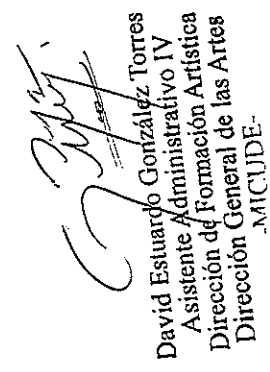 David Estuardo González Torres
Asistente Administrativo IV
Dirección de Formación Artística
Dirección General de las Artes
-MICUDE-